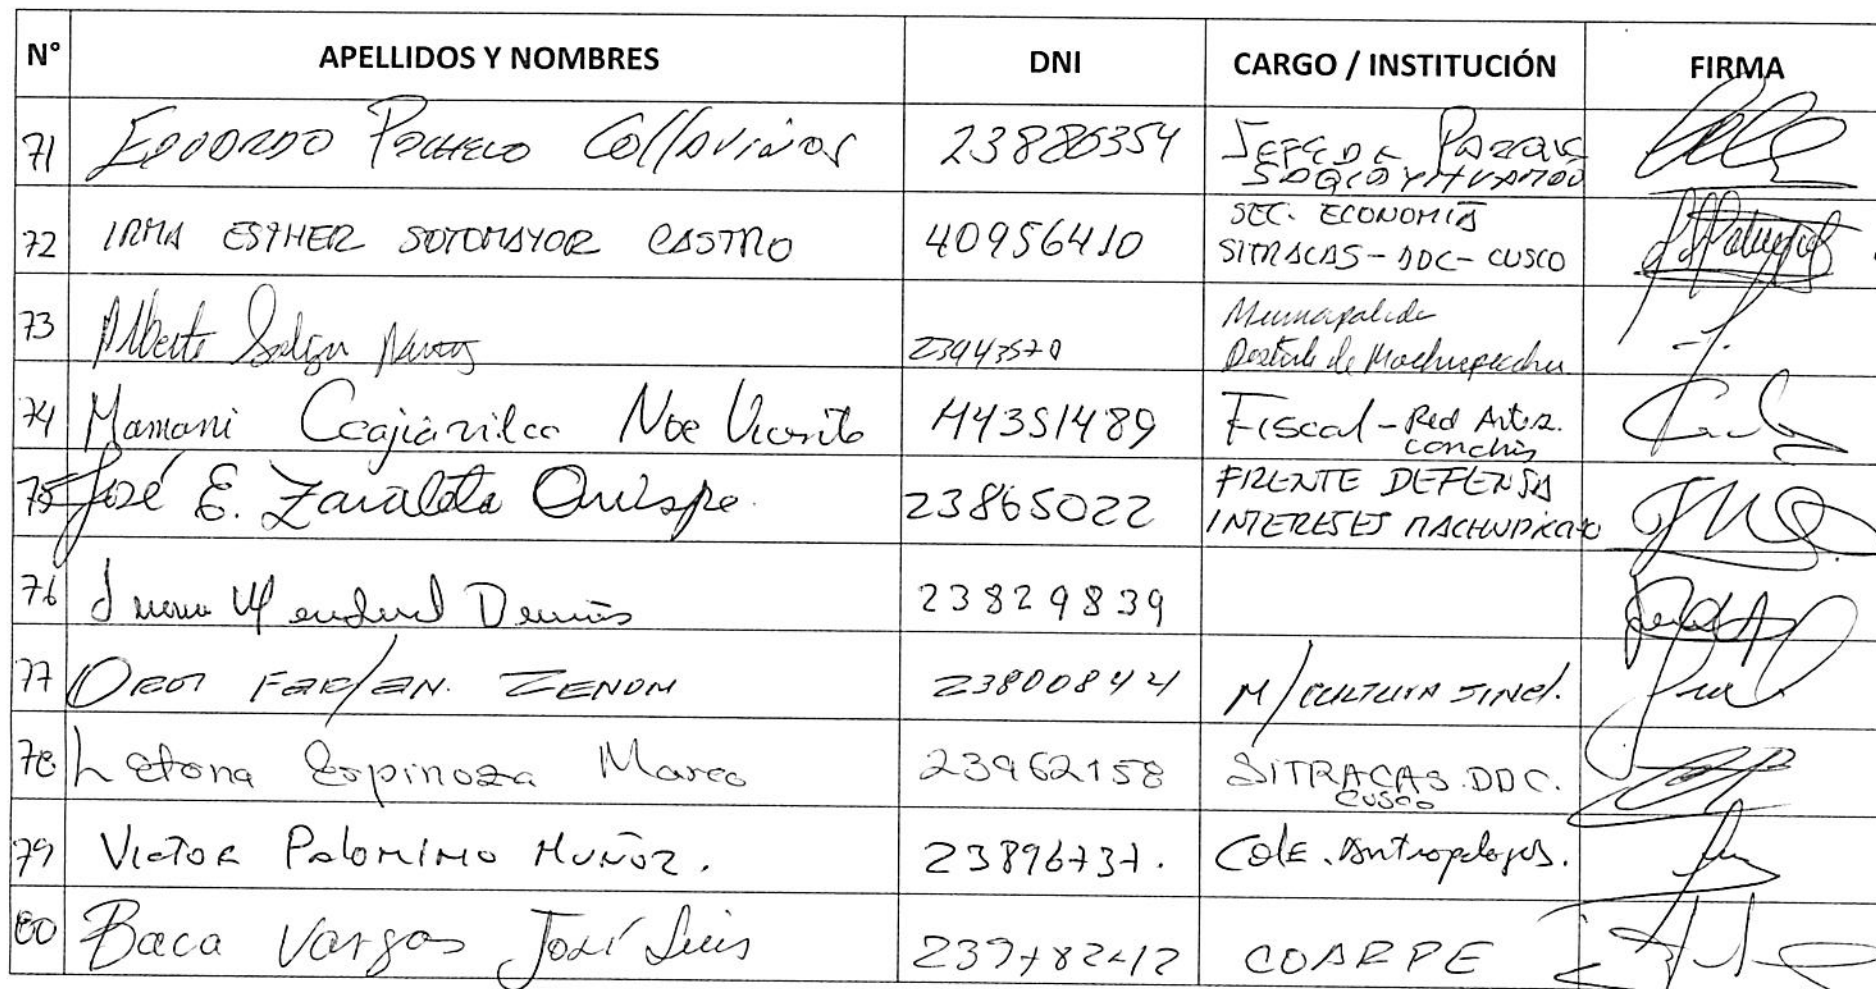 N° APELLIDOS Y NOMBRES DNI CARGO / INSTITUCIÓN FIRMA
71 EDUARDO PACHECO Collaviños 23886354 JEFE DE PARQUE
72 IRMA ESTHER SOTOMAYOR CASTRO 40956410 SEC. ECONOMIA
SITRACAS - DDC - CUSCO
73 Alberto 23943570 Municipalida
de Machupicchu
74 Mamani Ccajiavilca Noe Vicente 44351489 Fiscal - Red Artes.
75 José E. Zavaleta Quispe. 23865022 FRENTE DEFENSA
INTERESES MACHUPICCHO
76 23829839
77 OROS FARFAN. ZENON 23800842 M/CULTURA SIND.
78 Letona Espinoza Marco 23962158 SITRACAS DDC.
CUSCO
79 VICTOR PALOMINO MUÑOZ. 23896737. COLE. Antropologos.
80 Baca Vargas José Luis 239782412 COARPE